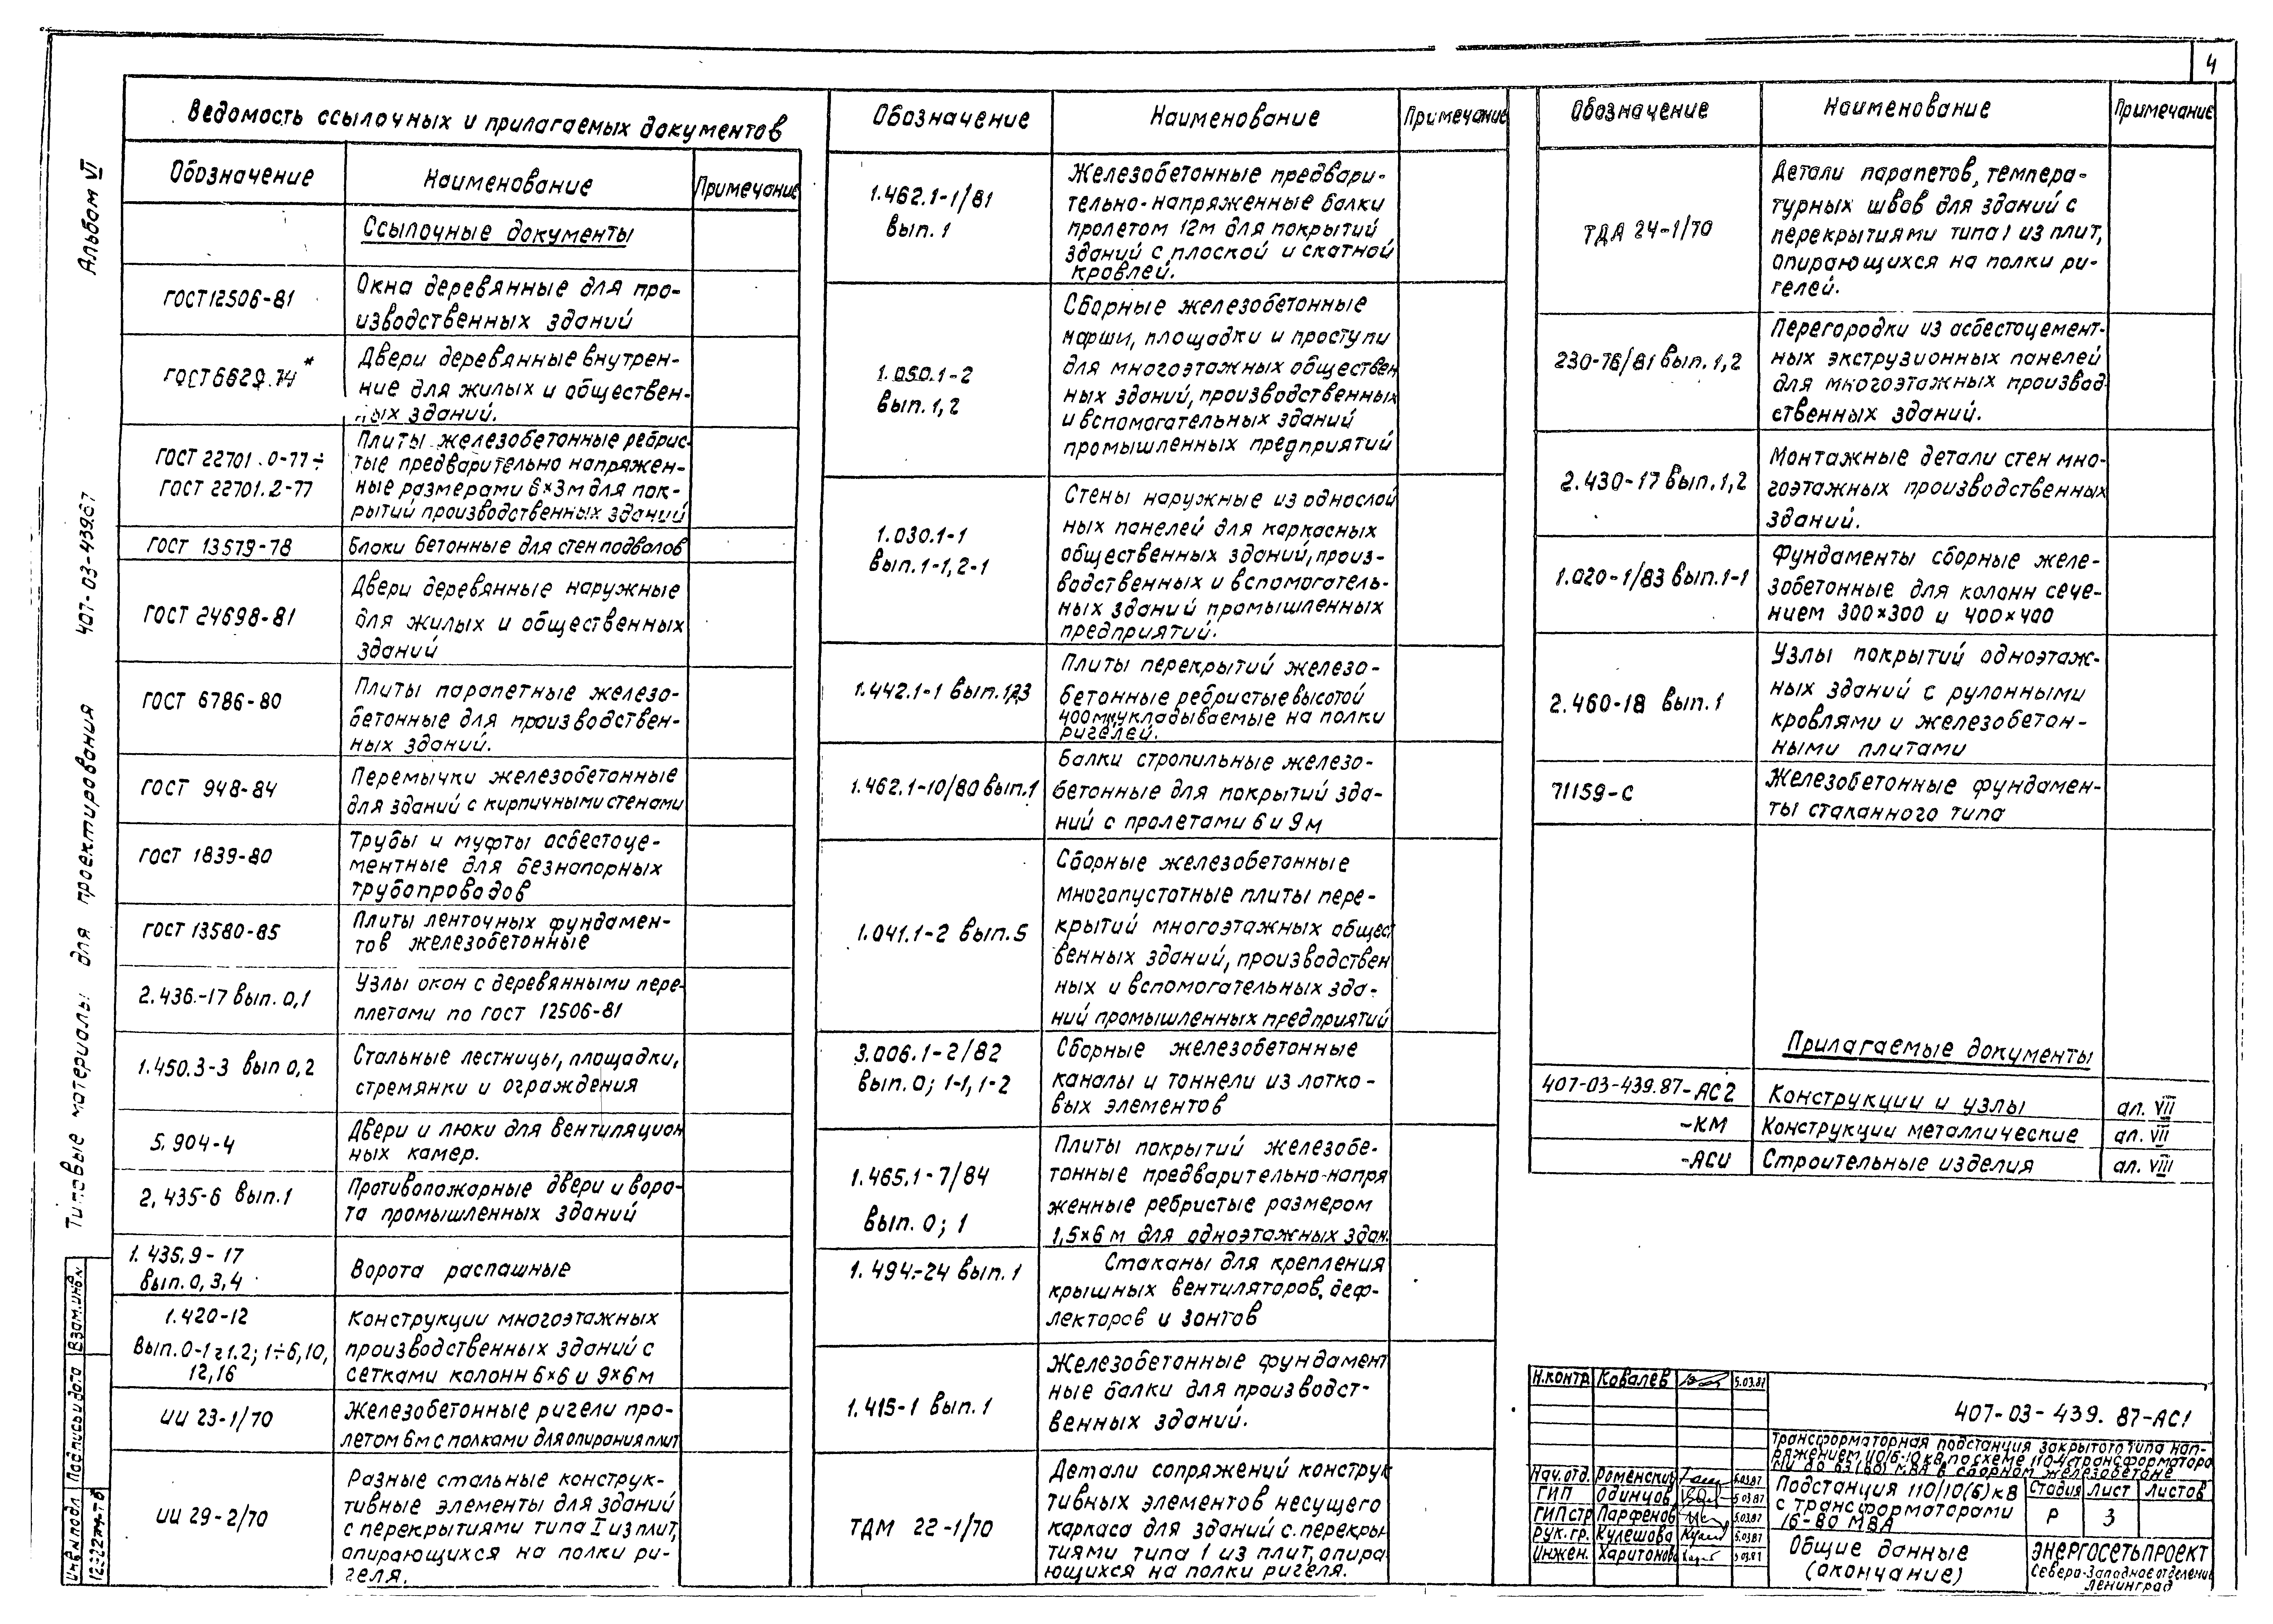 4
Альбом VI
Типовые материалы для проектирования 407-03-439.87
Ведомость ссылочных и прилагаемых документов
Обозначение
Наименование
Примечание
Ссылочные документы
ГОСТ 12506-81
Окна деревянные для про-
изводственных зданий
ГОСТ 6629-74*
Двери деревянные внутрен-
ние для жилых и обществен-
ных зданий.
ГОСТ 22701.0-77÷
ГОСТ 22701.2-77
Плиты железобетонные ребрис-
тые предварительно напряжен-
ные размерами 6×3м для пок-
рытий производственных зданий
ГОСТ 13579-78
Блоки бетонные для стен подвалов
ГОСТ 24698-81
Двери деревянные наружные
для жилых и общественных
зданий
ГОСТ 6786-80
Плиты парапетные железо-
бетонные для производствен-
ных зданий.
ГОСТ 948-84
Перемычки железобетонные
для зданий с кирпичными стенами
ГОСТ 1839-80
Трубы и муфты асбестоце-
ментные для безнапорных
трубопроводов
ГОСТ 13580-85
Плиты ленточных фундамен-
тов железобетонные
2.436.-17 вып. 0,1
Узлы окон с деревянными пере-
плетами по гост 12506-81
1.450.3-3 вып 0,2
Стальные лестницы, площадки,
стремянки и ограждения
5.904-4
Двери и люки для вентиляцион
ных камер.
2.435-6 вып.1
Противопожарные двери и воро-
та промышленных зданий
1.435.9-17
вып.0,3,4
Ворота распашные
1.420-12
Вып.0-1 1.2; 1÷6,10,
12,16
Конструкции многоэтажных
производственных зданий с
сетками колонн 6×6 и 9×6м
ИИ 23-1/70
Железобетонные ригели про-
летом 6м с полками для опирания плит
ИИ 29-2/70
Разные стальные конструк-
тивные элементы для зданий
с перекрытиями типа I из плит,
опирающихся на полки ри-
геля.
Обозначение
Наименование
Примечание
1.462.1-1/81
вып. 1
Железобетонные предвари-
тельно-напряженные балки
пролетом 12м для покрытий
зданий с плоской и скатной
кровлей.
1.050.1-2
вып.1,2
Сборные железобетонные
марши, площадки и проступи
для многоэтажных обществен
ных зданий, производственных
и вспомогательных зданий
промышленных предприятий
1.030.1-1
вып.1-1, 2-1
Стены наружные из однослой
ных панелей для каркасных
общественных зданий, произ-
водственных и вспомогатель-
ных зданий промышленных
предприятий.
1.442.1-1 вып.1,2,3
Плиты перекрытий железо-
бетонные ребристые высотой
400мм укладываемые на полки
ригелей.
1.462.1-10/80 вып.1
Балки стропильные железо-
бетонные для покрытий зда-
ний с пролетами 6 и 9м
1.041.1-2 вып.5
Сборные железобетонные
многопустотные плиты пере-
крытий многоэтажных общест
венных зданий, производствен
ных и вспомогательных зда-
ний промышленных предприятий
3.006.1-2/82
вып.0; 1-1, 1-2
Сборные железобетонные
каналы и тоннели из лотко-
вых элементов
1.465.1-7/84
вып. 0; 1
Плиты покрытий железобе-
тонные предварительно-напря
женные ребристые размером
1,5×6 м для одноэтажных здан.
1.494.-24 вып.1
Стаканы для крепления
крышных вентиляторов, деф-
лекторов и зонтов
1.415-1 вып.1
Железобетонные фундамент
ные балки для производст-
венных зданий.
ТДМ 22-1/70
Детали сопряжений конструк
тивных элементов несущего
каркаса для зданий с перекры
тиями типа 1 из плит, опира
ющихся на полки ригеля.
Обозначение
Наименование
Примечание
ТДА 24-1/70
Детали парапетов, темпера-
турных швов для зданий с
перекрытиями типа 1 из плит,
опирающихся на полки ри-
гелей.
230-76/81 вып.1,2
Перегородки из асбестоцемент-
ных экструзионных панелей
для многоэтажных производ
ственных зданий.
2.430-17 вып.1,2
Монтажные детали стен мно-
гоэтажных производственных
зданий.
1.020-1/83 вып.1-1
Фундаменты сборные желе-
зобетонные для колонн сече-
нием 300×300 и 400×400
2.460-18 вып.1
Узлы покрытий одноэтаж-
ных зданий с рулонными
кровлями и железобетон-
ными плитами
71159-С
Железобетонные фундамен-
ты стаканного типа
Прилагаемые документы
407-03-439.87-АС2
Конструкции и узлы
ал. VII
-КМ
Конструкции металлические
ал. VII
-АСИ
Строительные изделия
ал. VIII
Н.контр Ковалев 5.03.87
407-03-439.87-АС1
Трансформаторная подстанция закрытого типа нап-
ряжением 110/6-10 кВ по схеме 110-4 трансформатора
ми до 63(80) МВА в сборном железобетоне
Нач.отд. Роменский 5.03.87
ГИП Одинцов 5.03.87
ГИПстр Парфенов 5.03.87
Рук.гр. Кулешова 5.03.87
Инжен. Харитонова 5.03.87
Подстанция 110/10(6)кВ
с трансформаторами
16-80 МВА
Стадия Лист Листов
Р 3
Общие данные
(окончание)
ЭНЕРГОСЕТЬПРОЕКТ
Северо-Западное отделение
Ленинград
Взам.инв.N
Подпись и дата
Инв.N подл